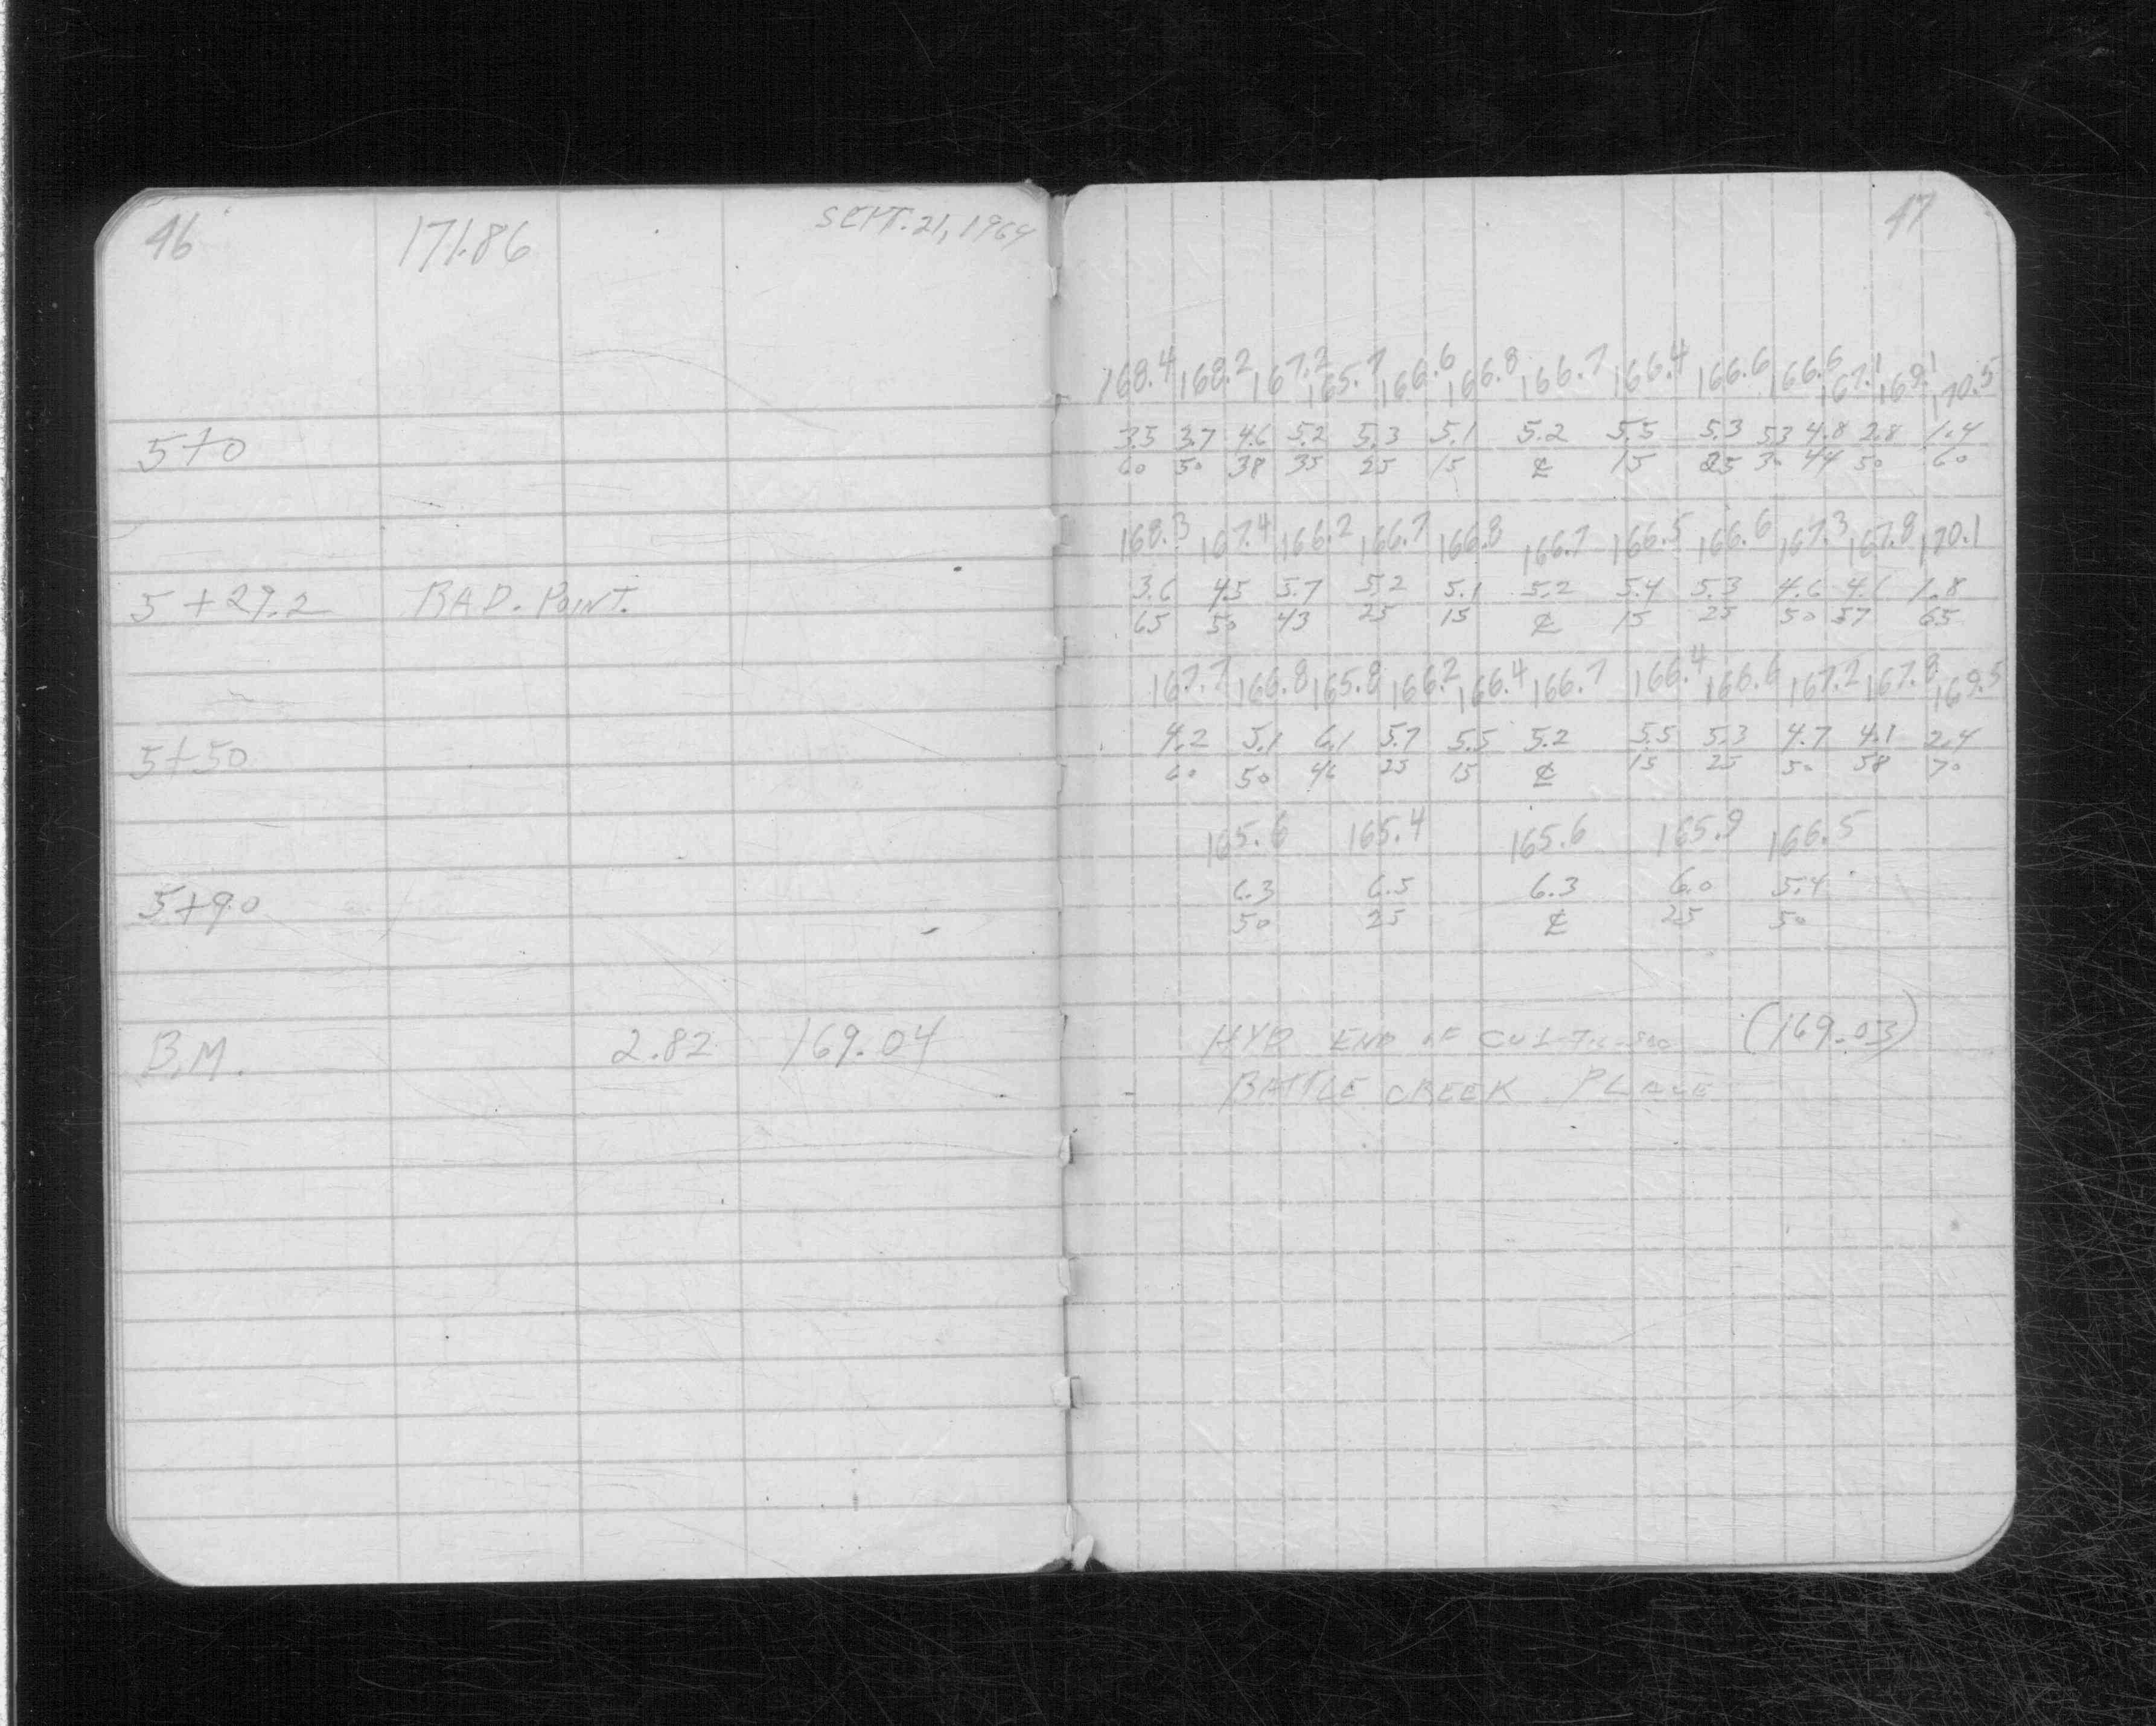 46 171.86 SEPT. 21, 1964
5+0
5+29.2 RAD. POINT.
5+50
5+90
B.M. 2.82 169.04
47
168.4 168.2 167.2 165.7 166.6 166.8 166.7 166.4 166.6 166.6 167.1 169.1 170.5
3.5 3.7 4.6 5.2 5.3 5.1 5.2 5.5 5.3 5.3 4.8 2.8 1.4
60 50 38 35 25 15 ℄ 15 25 30 44 50 60
168.3 167.4 166.2 166.7 166.8 166.7 166.5 166.6 167.3 167.8 170.1
3.6 4.5 5.7 5.2 5.1 5.2 5.4 5.3 4.6 4.1 1.8
65 50 43 25 15 ℄ 15 25 50 57 65
167.7 166.8 165.8 166.2 166.4 166.7 166.4 166.6 167.2 167.8 169.5
4.2 5.1 6.1 5.7 5.5 5.2 5.5 5.3 4.7 4.1 2.4
60 50 46 25 15 ℄ 15 25 50 58 70
165.6 165.4 165.6 165.9 166.5
6.3 6.5 6.3 6.0 5.4
50 25 ℄ 25 50
HYD END OF (169.03)
BATTLE CREEK PLACE